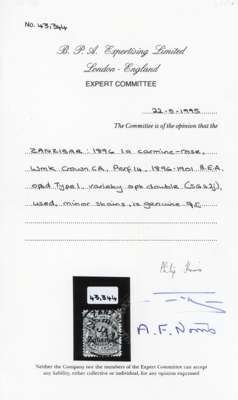 No. 43,344
B. P. A. Expertising Limited
London - England
EXPERT COMMITTEE
22-5-1995
The Committee is of the opinion that the
ZANZIBAR: 1896 1a carmine-rose,
Wmk Crown CA, Perf 14, 1896-1901 B.E.A.
optd Type 1, variety opt double (SG82j),
used, minor stains, is genuine.
43,344
A. F. Norris
Neither the Company nor the members of the Expert Committee can accept
any liability, either collective or individual, for any opinion expressed.